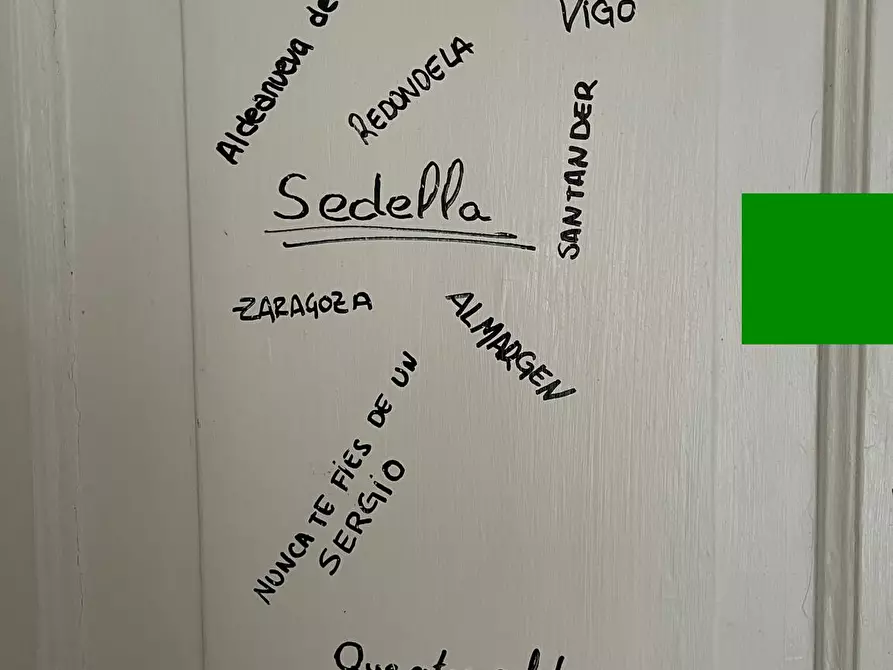 Aldeanueva de
VIGO
REDONDELA
SANTANDER
Sedella
ZARAGOZA
ALMARGEN
NUNCA TE FIES DE UN
SERGIO